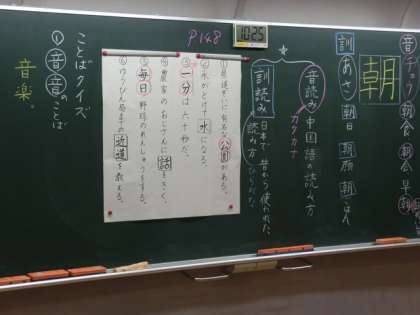 音 チョウ 朝食 朝会 早朝
朝
訓 あさ 朝日 朝顔 朝ごはん
音読み 中国語の読み方
カタカナ
訓読み 日本で昔から使われた
読み方 ひらがな
10:25
P148
① に有名な公園がある。
②氷がとけて水になる。
③一分は六十秒だ。
④農家のおじさんに話をきく。
⑤毎日野球のれんしゅうをする。
⑥ゆうびん局までの近道を教える。
ことばクイズ
①音音のことば
音楽。